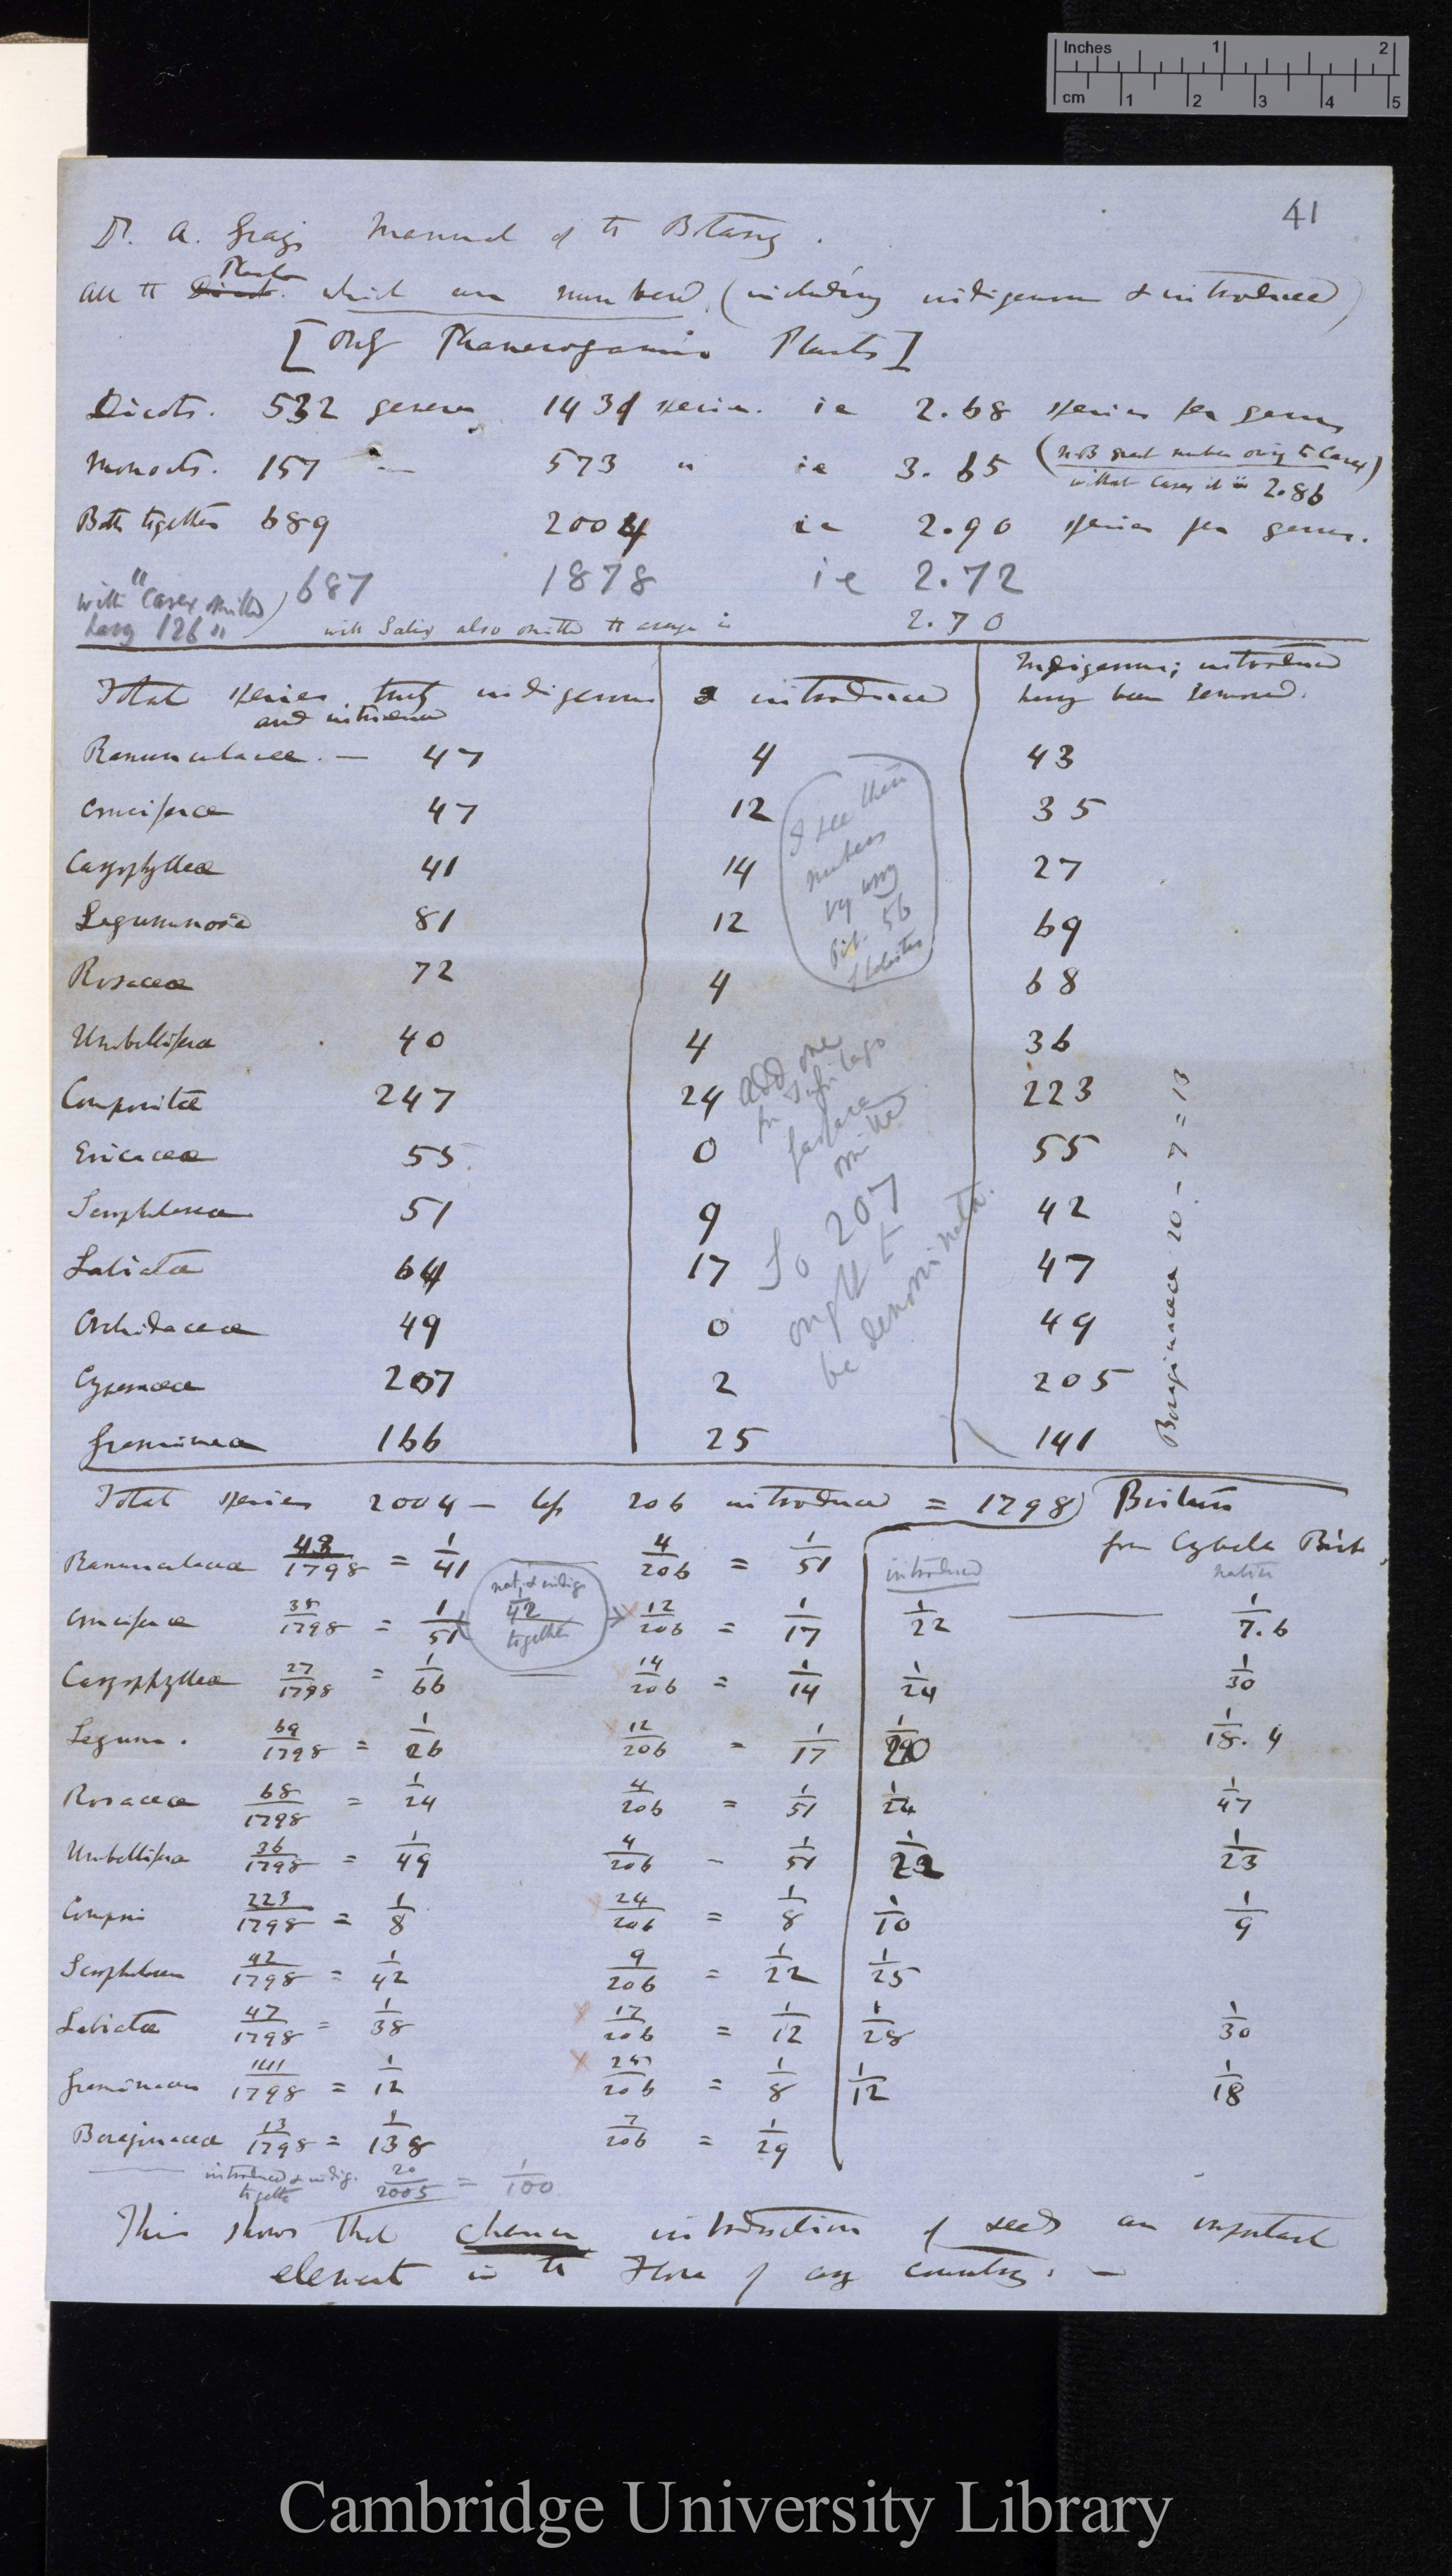 Inches 1 2
cm 1 2 3 4 5
41
Dr. A. Gray's Manual of the Botany.
Plants
All the Dicot. which are numbered, (including indigenous & introduced)
[Only Phanerogamic Plants]
Dicots. 532 genera 1431 species. ie 2.68 species per genus
Monocots. 157 — 573 " ie 3.65 (N.B great number owing to Carex)
without Carex it is 2.86
Both together 689 2004 ie 2.90 species per genus.
687 1878 ie 2.72
with "Carex omitted
having 126"
with Salix also omitted the average is 2.70
Total species truly indigenous & introduced Indigenous; introduced
and introduced having been removed.
Ranunculaceæ. — 47 4 43
Cruciferæ 47 12 35
Caryophylleæ 41 14 27
Leguminosæ 81 12 69
Rosaceæ 72 4 68
Umbelliferæ 40 4 36
Compositæ 247 24 223
Ericaceæ 55. 0 55
Scrophulariæ 51 9 42
Labiatæ 64 17 47
Orchidaceæ 49 0 49
Cyperaceæ 207 2 205
Gramineæ 166 25 141
I see these
numbers
by using
56
add one
for Tussilago
farfara
omitted
So 207
ought to
be denominator.
Boraginaceæ 20 - 7 = 13
Total species 2004 — less 206 introduced = 1798) Britain
from Cybele Brit.
introduced native
Ranunculaceæ 43/1798 = 1/41 4/206 = 1/51
Cruciferæ 35/1798 = 1/51 12/206 = 1/17 1/22 — 1/7.6
nat. & indig
1/42
together
Caryophylleæ 27/1798 = 1/66 — 14/206 = 1/14 1/24 1/30
Legum. 69/1798 = 1/26 12/206 = 1/17 1/18.4
Rosaceæ 68/1798 = 1/24 4/206 = 1/51 1/24 1/47
Umbelliferæ 36/1798 = 1/49 4/206 - 1/51 1/22 1/23
Compos 223/1798 = 1/8 24/206 = 1/8 1/10 1/9
Scrophularin 42/1798 = 1/42 9/206 = 1/22 1/25
Labiatæ 47/1798 = 1/38 17/206 = 1/12 1/28 1/30
Gramineæ 141/1798 = 1/12 25/206 = 1/8 1/12 1/18
Boraginaceæ 13/1798 = 1/138 7/206 = 1/29
— introduced & indig. 20/2005 = 1/100
together
This shows that chance introduction of seeds an important
element in the Flora of any country. —
Cambridge University Library